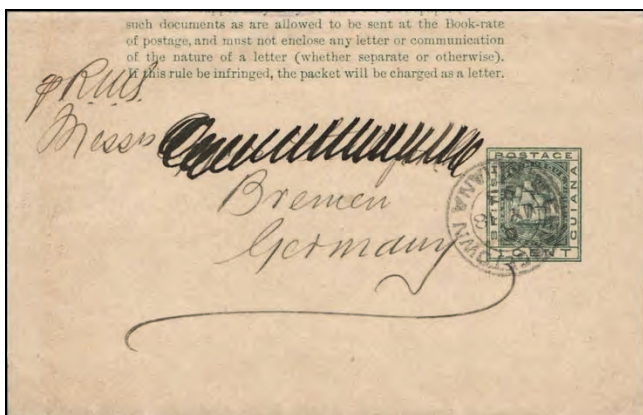 such documents as are allowed to be sent at the Book-rate
of postage, and must not enclose any letter or communication
of the nature of a letter (whether separate or otherwise).
If this rule be infringed, the packet will be charged as a letter.
p RMS.
Messrs
Bremen
Germany
POSTAGE
BRITISH
GUIANA
1 CENT